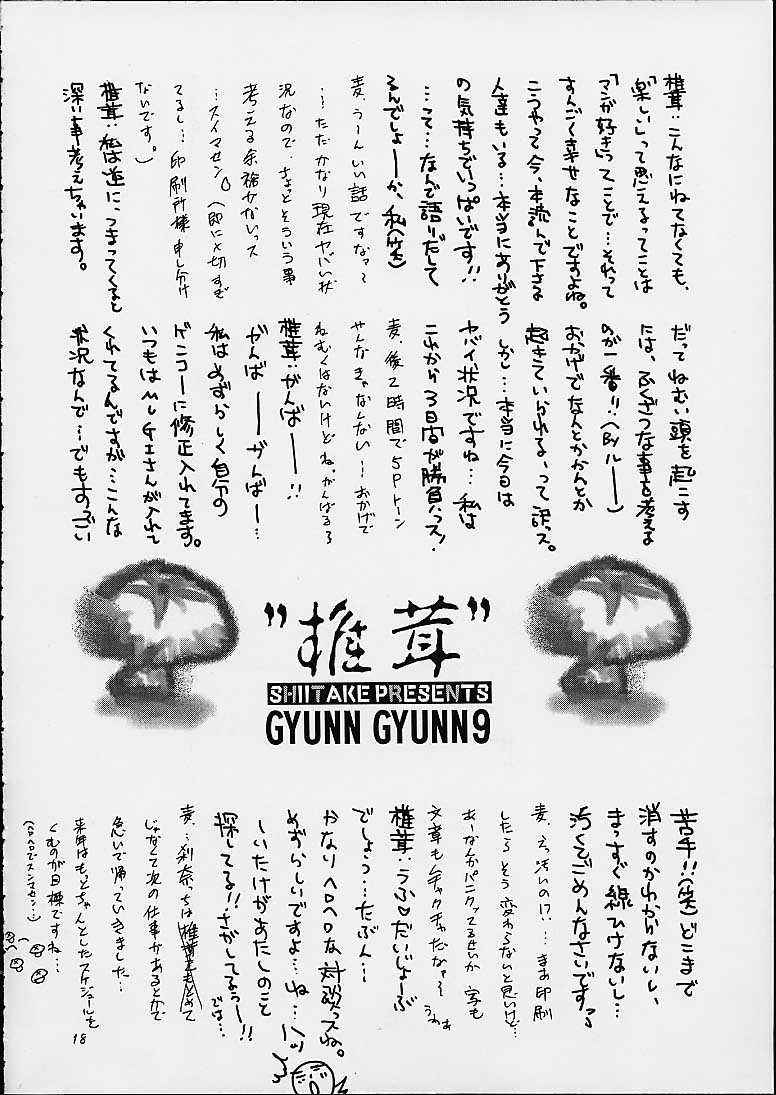 椎茸:こんなにねてなくても、
「楽しい」って思えるってことは
「マンガ好き」ってことで…それって
すんごく幸せなことですよね。
こうやって今、本読んで下さる
人達もいる…本当にありがとう
の気持ちでいっぱいです!!
…って…なんで語りだして
るんでしょーか、私(笑)
麦:うーんいい話ですなァ~
…ただかなり現在ヤバい状
況なので、ちょっとそういう事
考える余裕がないっス
…スイマセン(即に〆切すぎ
てるし…印刷所様申し分け
ないです。)
椎茸:私は逆に、つまってくると
深い事考えちゃいます。
だってねむい頭を起こす
には、ふくざつな事を考える
のが一番!!
おかげでなんとかかんとか
起きていられる、って訳っス。
しかし…本当に今日は
ヤバイ状況ですね…私は
これから3日間が勝負っス!
麦:後2時間で5Pトーン
やんなきゃなんない…おかげで
ねむくはないけどね、がんばるろ
椎茸:がんばーー!!
がんばーーがんばー…
私はめずらしく自分の
ゲンコーに修正入れてます。
いつもはMUGIさんが入れて
くれてるんですが…こんな
状況なんで…でもすっごい
"椎茸"
SHIITAKE PRESENTS
GYUNN GYUNN 9
苦手!!(笑)どこまで
消すのかわからないし、
まっすぐ線ひけないし…
汚くてごめんなさいですっ
麦:えっ汚いの!?…まあ印刷
したらそう変わらないと思いけど…
あーなんかパニクッてるせいか字も
文章もメチャクチャだなァ~
うわぁ
椎茸:うふ♡だいじょーぶ
でしょう…たぶん…
かなりヘロヘロな対談っスね。
めずらしいですよ…ね…ハッ
しいたけがあたしのこと
探してる!!さがしてるぅー!!
では…
麦:…刹奈っちは椎茸をもとめて
じゃなくて次の仕事があるとかで
急いで帰っていきました…
来年はもっとちゃんとしたスケジュールを
くむのが目標ですね…
(ヘロヘロでスンマセン…)
18